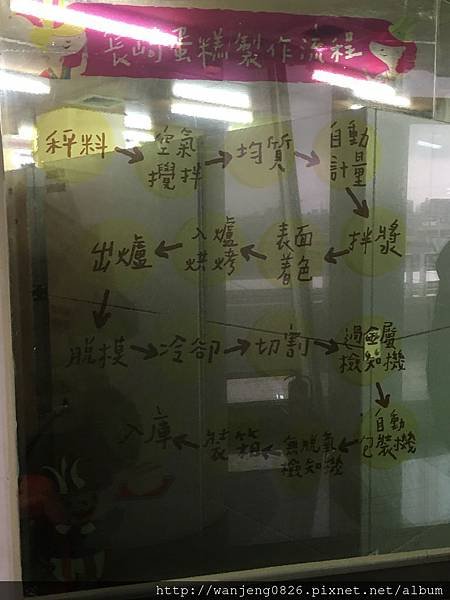 長崎蛋糕製作流程
秤料 → 空氣攪拌 → 均質 → 自動計量
→ 拌漿 → 表面着色 → 入爐烘烤 → 出爐
→ 脱模 → 冷卻 → 切割 → 過金屬檢知機
→ 自動包裝機 → 無脱氧檢知機 → 裝箱 → 入庫
http://wanjeng0826.pixnet.net/album